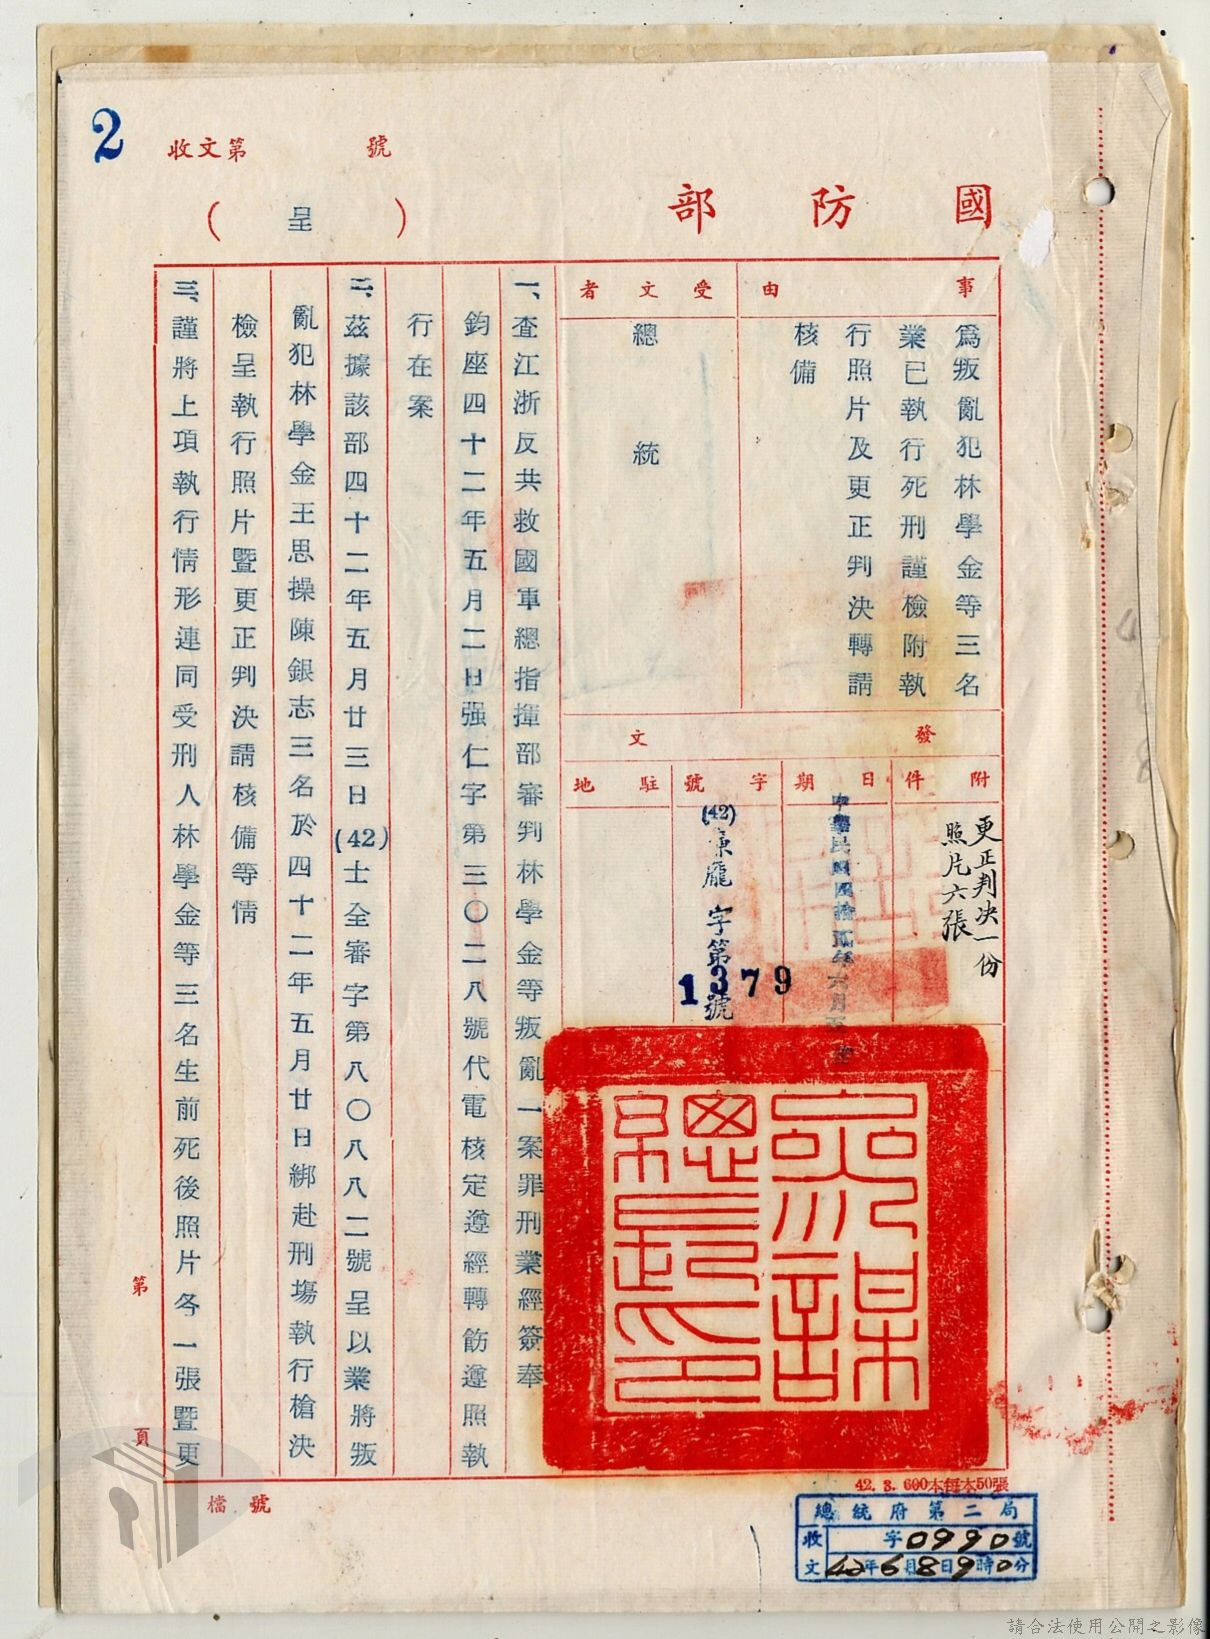 2
收文第 號
國防部
（呈）
事由
為叛亂犯林學金等三名
業已執行死刑謹檢附執
行照片及更正判決轉請
核備
受文者
總統
發文
附件
更正判決一份
照片六張
日期
中華民國四拾貳年六月
字號
(42)
字第1379號
駐地
一、查江浙反共救國軍總指揮部審判林學金等叛亂一案罪刑業經簽奉
鈞座四十二年五月二日强仁字第三〇二八號代電核定遵經轉飭遵照執
行在案
二、茲據該部四十二年五月廿三日(42)士全審字第八〇八八二號呈以業將叛
亂犯林學金王思操陳銀志三名於四十二年五月廿日綁赴刑場執行槍決
檢呈執行照片暨更正判決請核備等情
三、謹將上項執行情形連同受刑人林學金等三名生前死後照片各一張暨更
參謀
總長印
第 頁
檔號
42. 3. 600本每本50張
總統府第二局
收 字0990號
文 42年6月8日9時0分
請合法使用公開之影像